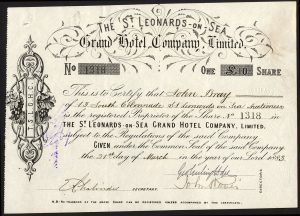 THE ST LEONARDS-ON-SEA
Grand Hotel Company, Limited.
No 1318 ONE £10 SHARE
This is to Certify that John Bray
of 13 South Colonnade St Leonards on Sea
is the registered Proprietor of the Share No 1318 in
THE ST LEONARDS-ON-SEA GRAND HOTEL COMPANY, LIMITED,
subject to the Regulations of the said Company
GIVEN under the Common Seal of the said Company
the 31st day of March in the year of our Lord 1883
SECRETARY
DIRECTORS
N.B. No transfer of the above share can be registered unless accompanied by this certificate.